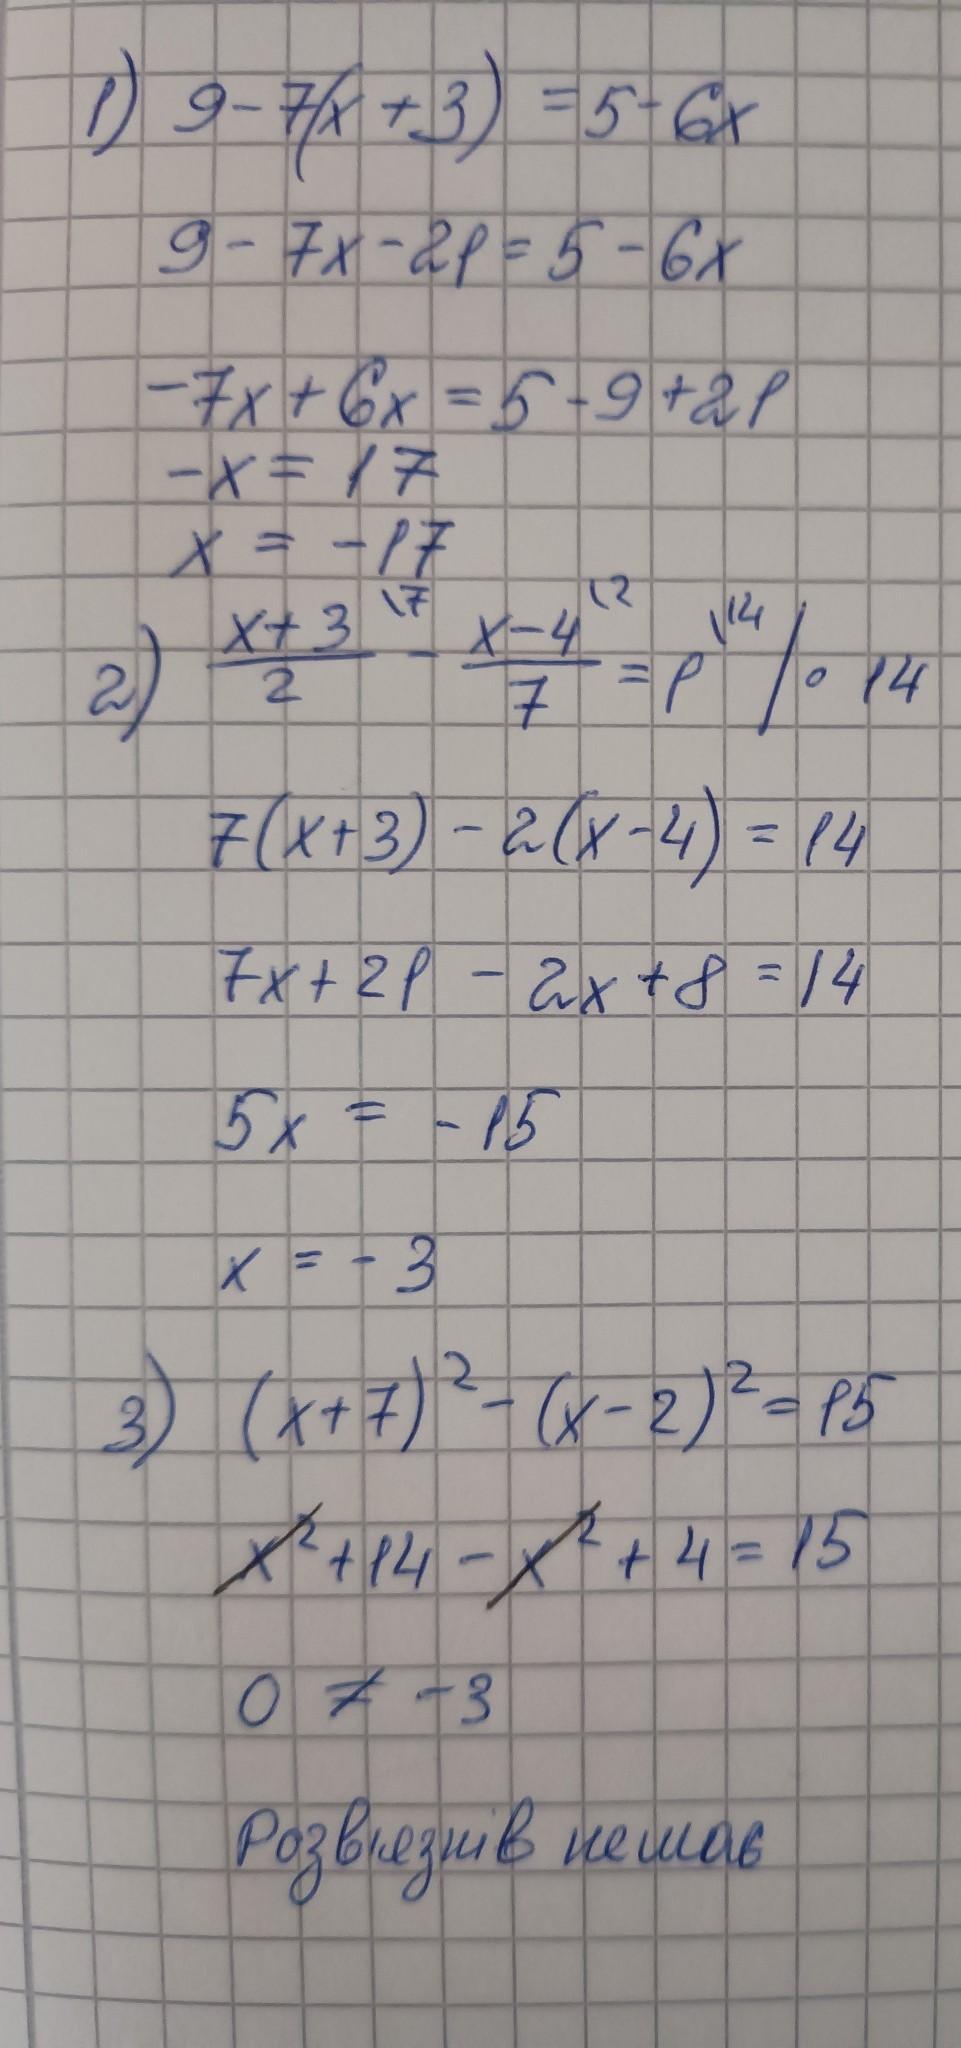 1) 9 - 7(x + 3) = 5 - 6x
9 - 7x - 21 = 5 - 6x
-7x + 6x = 5 - 9 + 21
-x = 17
x = -17
2) \frac{x+3}{2}^{\7} - \frac{x-4}{7}^{\2} = 1^{\14} / · 14
7(x+3) - 2(x-4) = 14
7x + 21 - 2x + 8 = 14
5x = -15
x = -3
3) (x+7)² - (x-2)² = 15
x² + 14 - x² + 4 = 15
0 ≠ -3
Розв'язнів немає